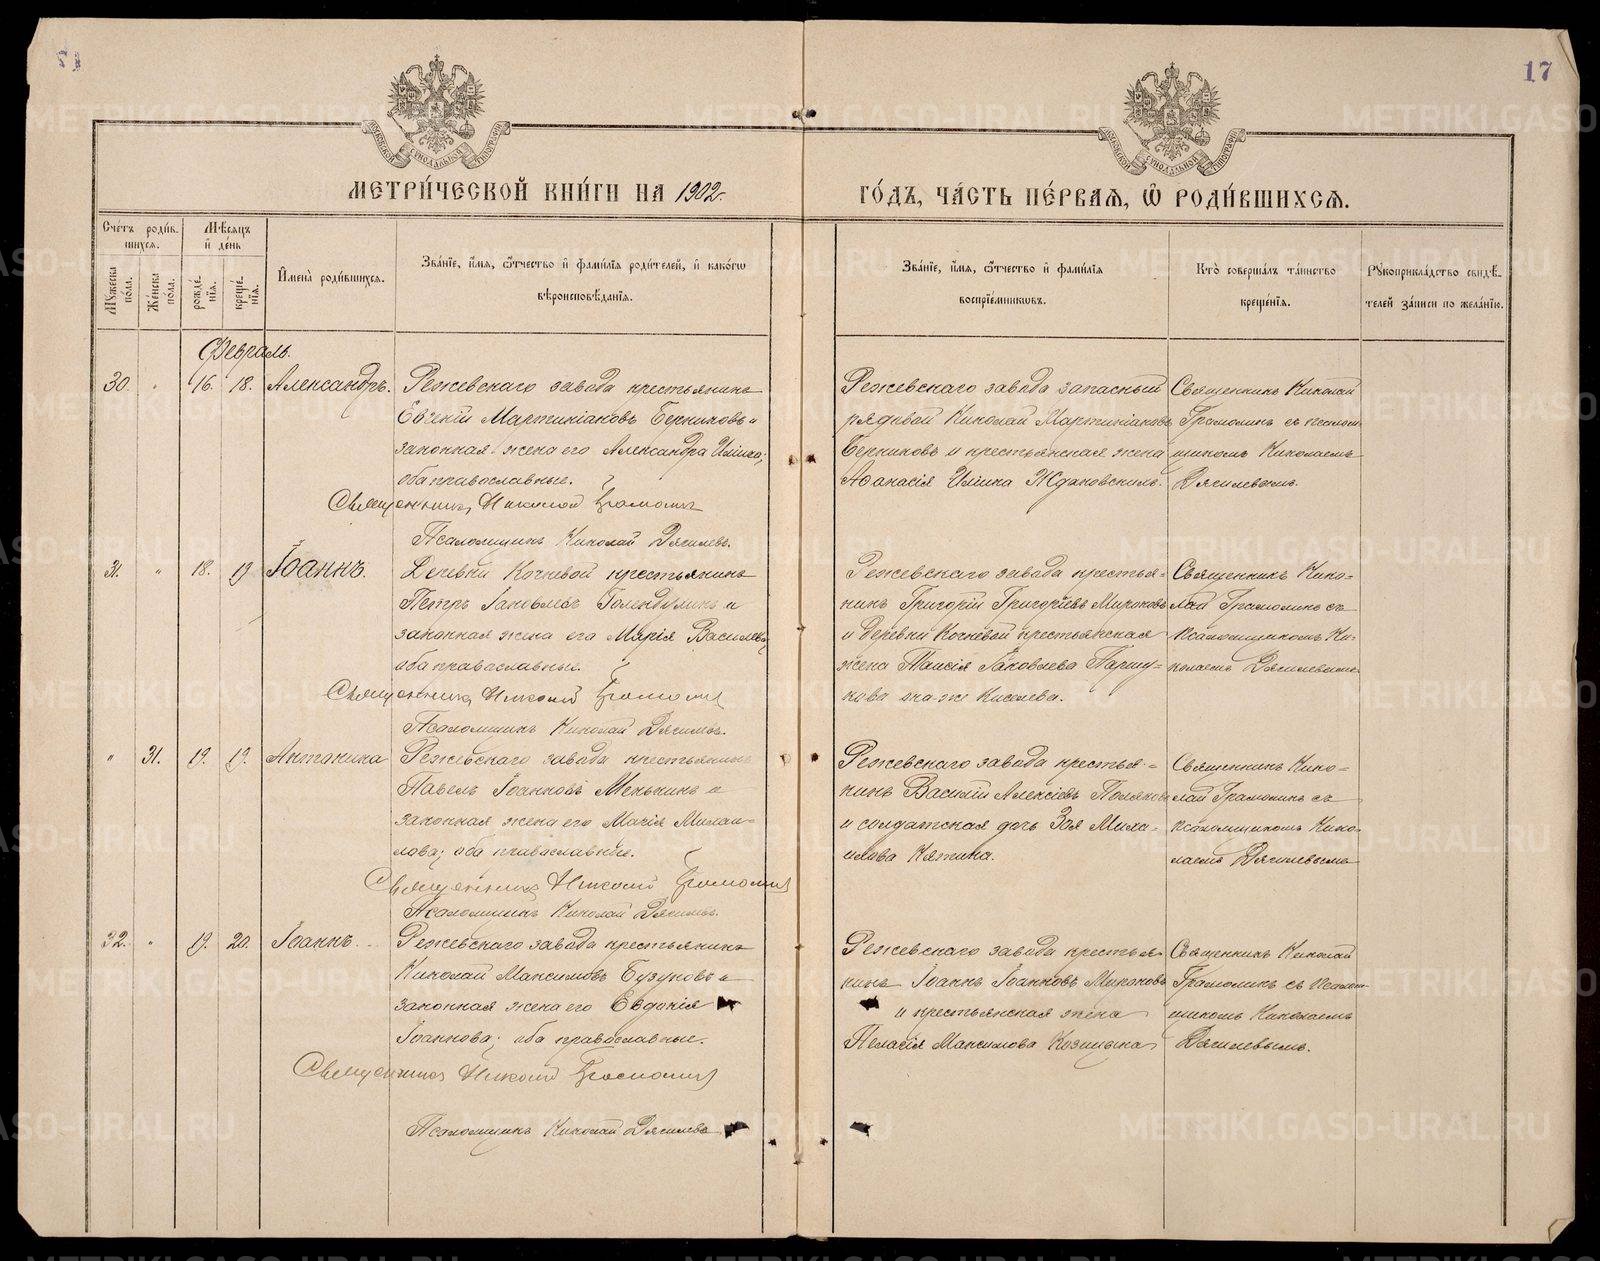 17
МЕТРИ́ЧЕСКОЙ КНИ́ГИ НА 1902 г.
ГО́ДЪ, ЧА́СТЬ ПЕ́РВАѦ, Ѡ҆ РОДИ́ВШИХСѦ.
Сче́тъ роди́в-
шихсѧ.
Мѣ́сѧцъ
и҆ де́нь
Мꙋ́жеска по́ла.
Же́нска по́ла.
рожде́-
нїѧ.
креще́-
нїѧ.
И҆мена̀ роди́вшихсѧ.
Зва́нїе, и҆́мѧ, ѻ҆́тчество и҆ фамилїѧ роди́телей, и҆ како́гѡ
вѣроисповѣ́данїѧ.
Зва́нїе, и҆́мѧ, ѻ҆́тчество и҆ фами́лїѧ
воспрїе́мникѡвъ.
Кто̀ соверша́лъ та́инство
креще́нїѧ.
Рꙋкоприкла́дство свидѣ́-
телей за́писи по жела́нїю.
Февраль.
30. " 16. 18. Александръ.
Режевскаго завода крестьянинъ
Евгеній Мартиніановъ Берниковъ и
законная жена его Александра Иліина;
оба православные.
Священникъ Николай Грамолинъ
Псаломщикъ Николай Дягилевъ.
Режевскаго завода запасный
рядовой Николай Мартиніановъ
Берниковъ и крестьянская жена
Аѳанасія Иліина Ждановскихъ.
Священникъ Николай
Грамолинъ съ псалом-
щикомъ Николаемъ
Дягилевымъ.
31. " 18. 19 Іоаннъ.
Деревни Кочневой крестьянинъ
Петръ Іаковлевъ Голендухинъ и
законная жена его Марія Василева;
оба православные.
Священникъ Николай Грамолинъ
Псаломщикъ Николай Дягилевъ.
Режевскаго завода крестья-
нинъ Григорій Григоріевъ Мироновъ
и деревни Кочневой крестьянская
жена Таисія Іаковлева Паршу-
кова она-же Киселева.
Священникъ Нико-
лай Грамолинъ съ
псаломщикомъ Ни-
колаемъ Дягилевымъ
" 31. 19. 19. Антонина
Режевскаго завода крестьянинъ
Павелъ Іоанновъ Менькинъ и
законная жена его Марія Михаи-
лова; оба православные.
Священникъ Николай Грамолинъ
Псаломщикъ Николай Дягилевъ.
Режевскаго завода крестья-
нинъ Василій Алексіевъ Поляковъ
и солдатская дочь Зоя Миха-
илова Кятина.
Священникъ Нико-
лай Грамолинъ съ
псаломщикомъ Нико-
лаемъ Дягилевымъ
32. " 19. 20. Іоаннъ.
Режевскаго завода крестьянинъ
Николай Максимовъ Бузуновъ и
законная жена его Евдокія
Іоаннова; оба православные.
Священникъ Николай Грамолинъ
Псаломщикъ Николай Дягилевъ
Режевскаго завода крестья-
нинъ Іоаннъ Іоанновъ Мироновъ
и крестьянская жена
Пелагія Максимова Козицына
Священникъ Николай
Грамолинъ съ псалом-
щикомъ Николаемъ
Дягилевымъ.
METRIKI.GASO-URAL.RU